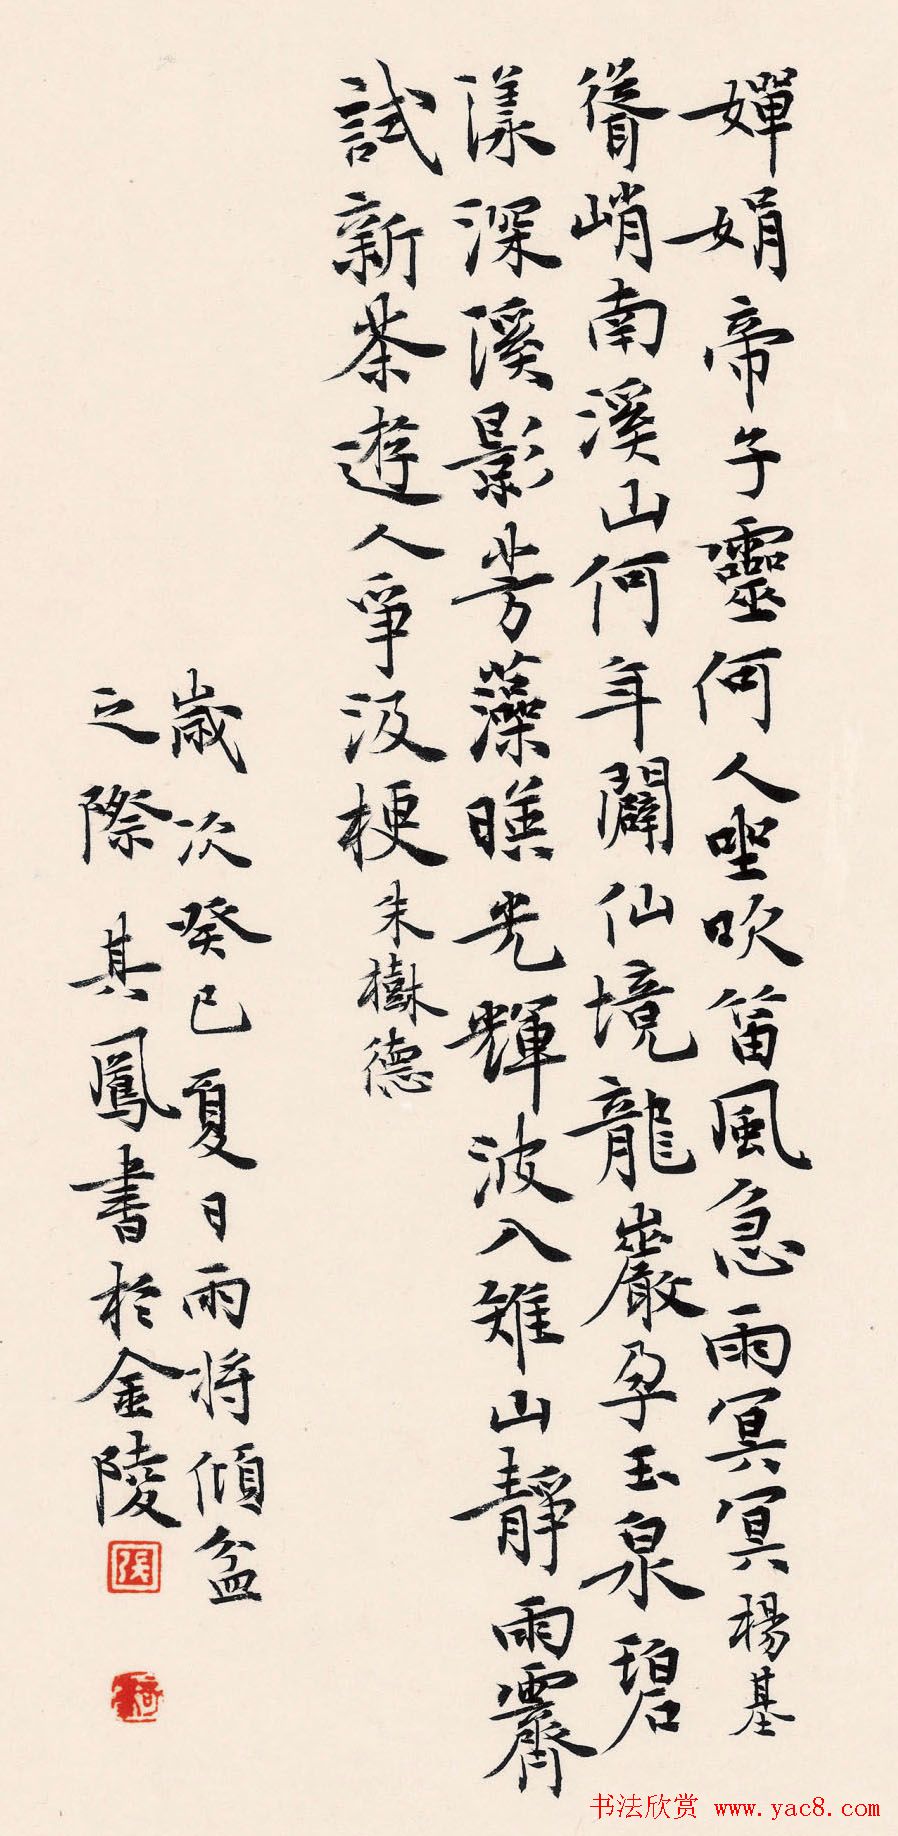 嬋娟帝子靈何人坐吹笛風急雨冥冥楊基
聳峭南溪山何年闢仙境龍巖孕玉泉碧
漾深溪影芳藻暎光輝波入雉山靜雨霽
試新茶遊人爭汲梗朱樹德
歲次癸巳夏日雨將傾盆
之際其鳳書於金陵
張
书法欣赏 www.yac8.com